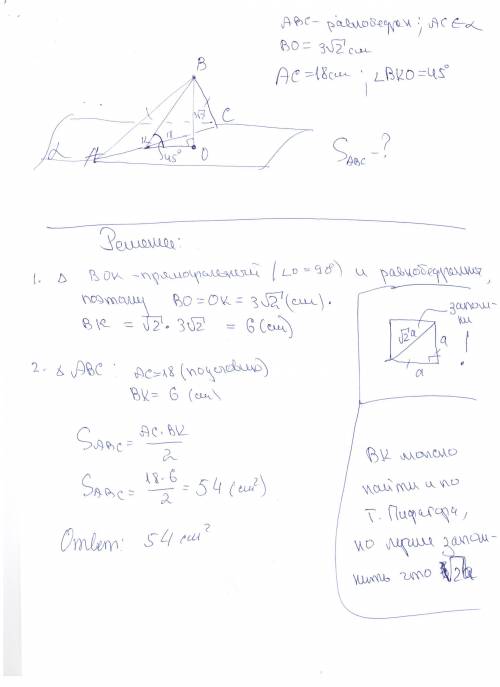 ABC - равнобедрен; AC∈α
BO = 3√2 см
AC = 18 см; ∠BKO = 45°
B
C
K
O
45°
A
α
S_ABC - ?
Решение:
1. Δ BOK - прямоугольный (∠O = 90°) и равнобедренный,
поэтому BO = OK = 3√2 (см).
BK = √2 · 3√2 = 6 (см)
запом-
ни
√2 a
a
a
!
2. Δ ABC: AC = 18 (по условию)
BK = 6 (см)
S_ABC = AC · BK / 2
S_ABC = 18 · 6 / 2 = 54 (см²)
Ответ: 54 см²
BK можно
найти и по
т. Пифагора,
но лучше запом-
нить что √2a